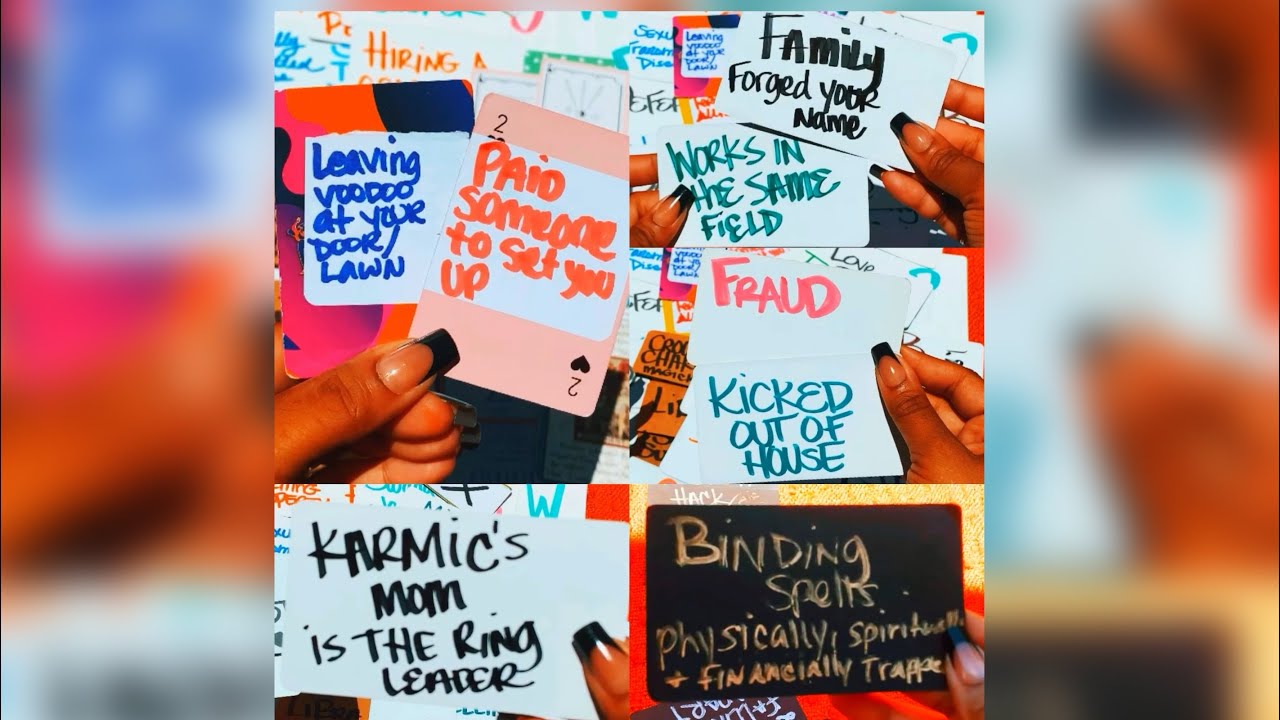 HIRING A
Leaving
VOODOO
at YOUR
DOOR/
LAWN
2
PAID
someone
to set you
UP
2
Leaving
VOODOO
at YOUR
DOOR/
LAWN
FAmily
Forged your
Name
WORKS IN
the SAME
FIELD
LOVE
FRAUD
KICKED
OUT OF
HOUSE
MAGICK
W
KARMIC's
mom
is THE RiNG
LEADER
LIBRA
HACK/
BiNDiNG
Spells
physically, spiritually
+ financially Trapped